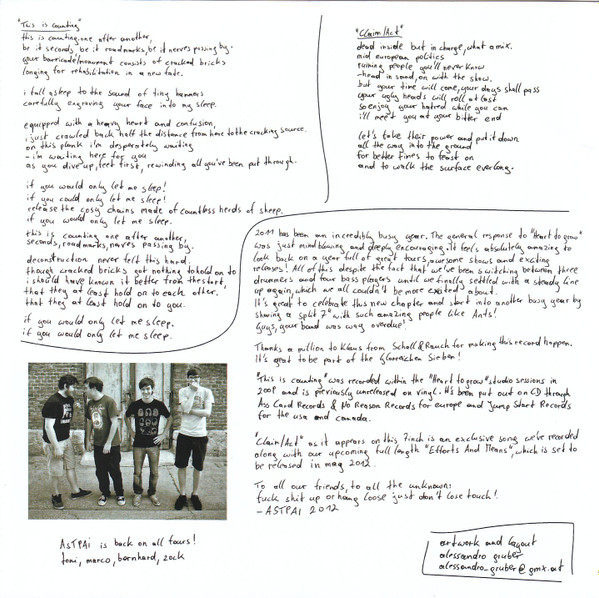 "This is counting"
this is counting, one after another,
be it seconds, be it roadmarks, be it nerves passing by.
your barricade/monument consists of cracked bricks
longing for rehabilitation in a new fate.
i fall asleep to the sound of tiny hammers
carefully engraving your face into my sleep.
equipped with a heavy heart and confusion,
i just crawled back half the distance from here to the cracking source.
on this plank i'm desperately waiting
- i'm waiting here for you
as you dive up, feet first, rewinding all you've been put through.
if you would only let me sleep!
if you could only let me sleep!
release the cosy chains made of countless herds of sheep.
if you would only let me sleep.
this is counting one after another,
seconds, roadmarks, nerves passing by.
deconstruction never felt this hard.
though cracked bricks got nothing to hold on to
i should have known it better from the start
that they at least hold on to each other.
that they at least hold on to you.
if you would only let me sleep.
if you would only let me sleep.
"Claim/Act"
dead inside but in charge, what a mix.
mid european politics
ruining people you'll never know
-head in sand, on with the show.
but your time will come, your days shall pass
your ugly heads will roll at last
so enjoy your hatred while you can
i'll meet you at your bitter end
let's take their power and put it down
all the way into the ground
for better times to feast on
and to walk the surface everlong.
2011 has been an incredibly busy year. The general response to "Heart to grow"
was just mindblowing and deeply encouraging. it feels absolutely amazing to
look back on a year full of great tours, awesome shows and exciting
releases! All of this despite the fact that we've been switching between three
drummers and four bass players until we finally settled with a steady line
up again, which we all couldn't be more excited about.
It's great to celebrate this new chapter and start into another busy year by
sharing a split 7" with such amazing people like Ants!
Guys, your band was way overdue!
Thanks a million to Klaus from Schall & Rauch for making this record happen.
It's great to be part of the Glorreichen Sieben!
"This is counting" was recorded within the "Heart to grow" studio sessions in
2009 and is previously unreleased on vinyl. It's been put out on CD through
Ass Card Records & No Reason Records for europe and Jump Start Records
for the usa and canada.
"Claim/Act" as it appears on this 7inch is an exclusive song we've recorded
along with our upcoming full length "Efforts And Means", which is set to
be released in may 2012.
To all our friends, to all the unknown:
fuck shit up or hang loose just don't lose touch!
- ASTPAI 2012
ASTPAI is back on all fours!
toni, marco, bernhard, zock
artwork and layout
alessandro gruber
alessandro_gruber@gmx.at